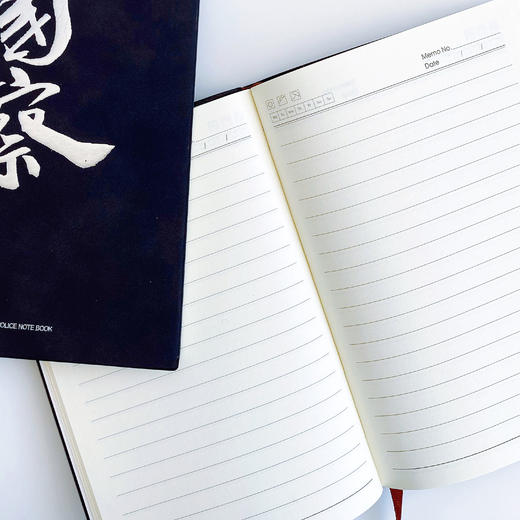 國
察
OLICE NOTE BOOK
Memo No.
Date / /
/ /